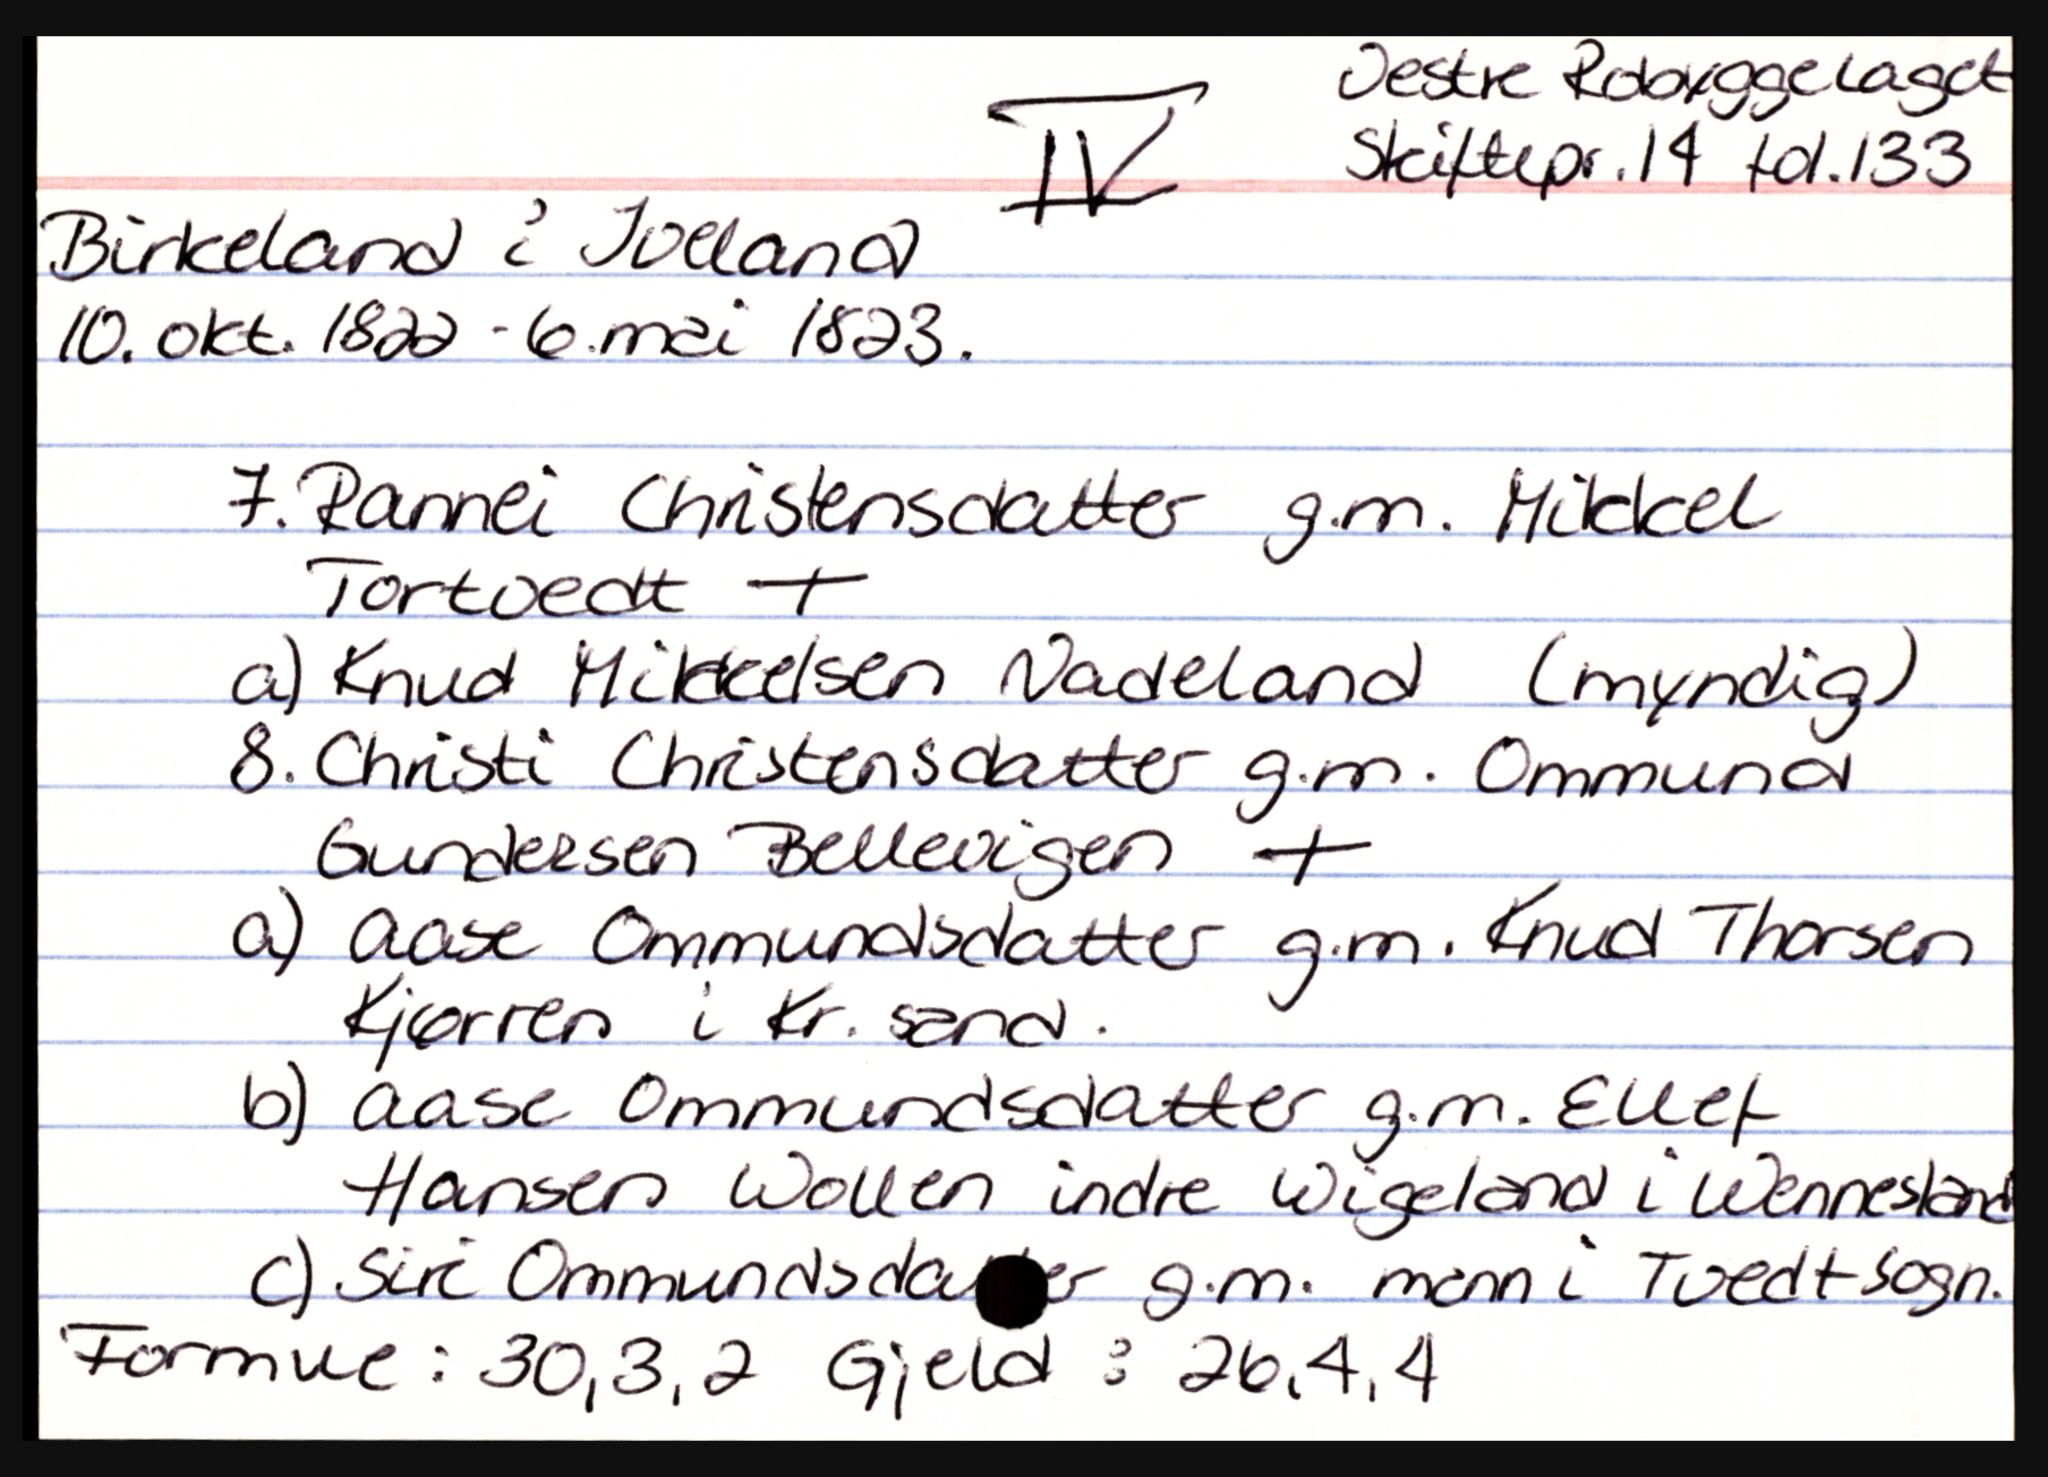 Vestre Robyggelaget
IV
Skiftepr. 14 fol. 133
Birkeland i Iveland
10. okt. 1822 - 6. mai 1823.
7. Rannei Christensdatter g.m. Mikkel
Tortvedt +
a) Knud Mikkelsen Nadeland (myndig)
8. Christi Christensdatter g.m. Ommund
Gundersen Bellevigen +
a) Aase Ommundsdatter g.m. Knud Thorsen
Kjørren i Kr. sand.
b) Aase Ommundsdatter g.m. Ellef
Hansen Wollen indre Wigeland i Wennesland
c) Siri Ommundsdatter g.m. mann i Tvedt sogn.
Formue : 30,3,2 Gjeld : 26,4,4